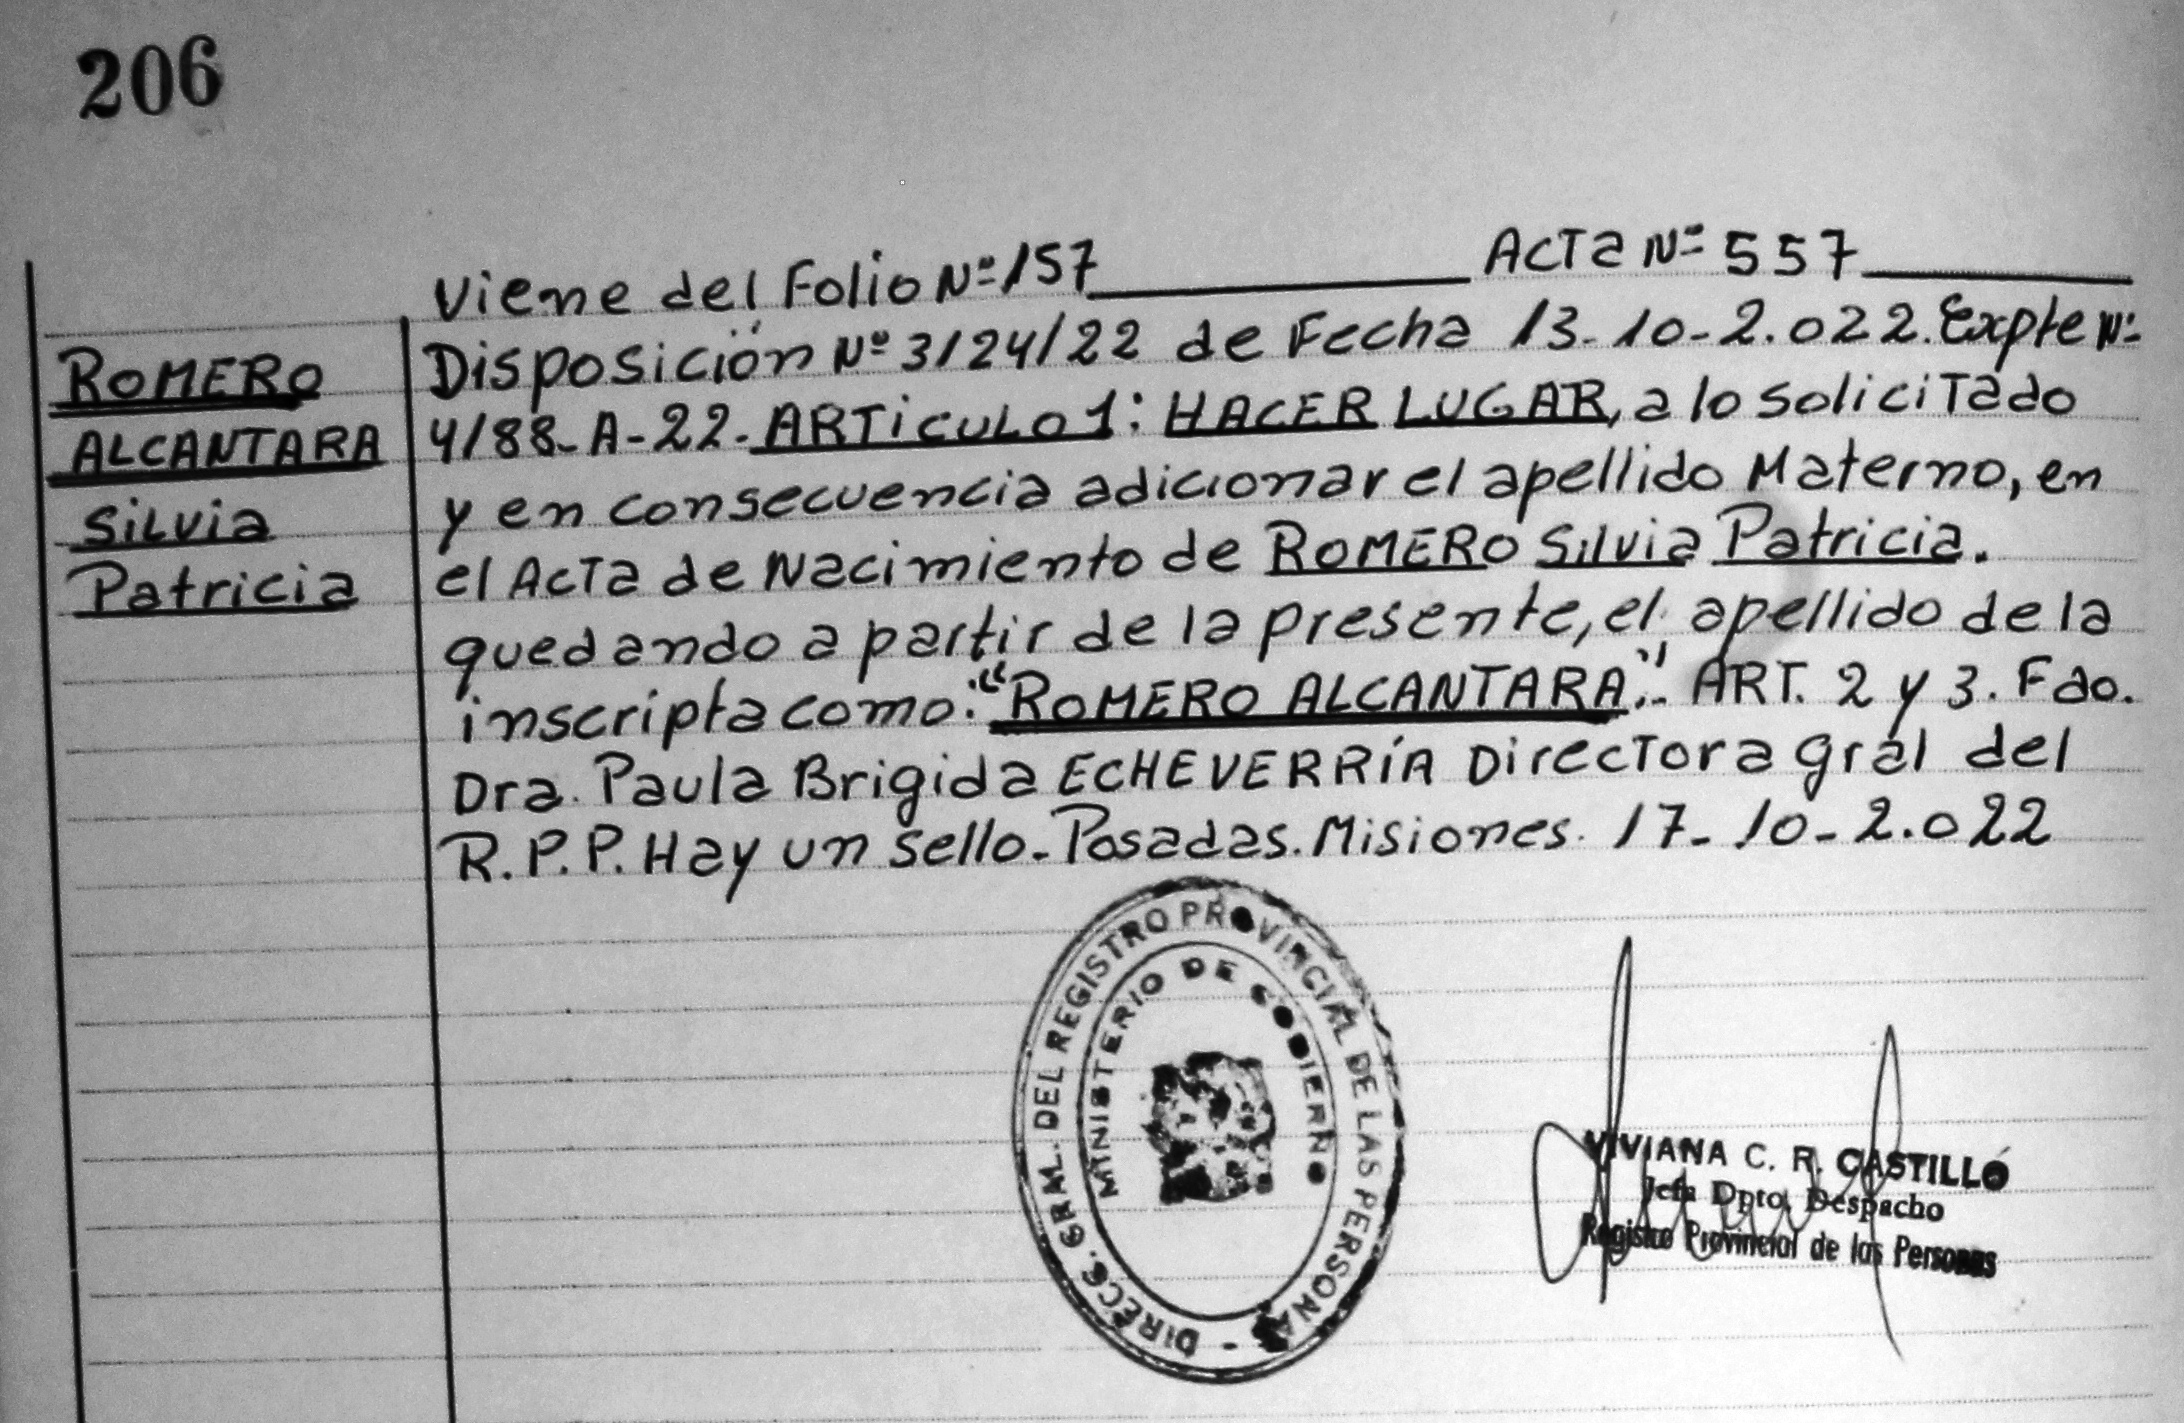 206
Viene del Folio Nº 157 ACTA Nº 557
ROMERO
ALCANTARA
Silvia
Patricia
Disposición Nº 3124/22 de Fecha 13-10-2.022. Expte Nº
4188-A-22. ARTICULO 1: HACER LUGAR, a lo solicitado
y en consecuencia adicionar el apellido Materno, en
el Acta de Nacimiento de ROMERO Silvia Patricia.
quedando a partir de la presente, el apellido de la
inscripta como: "ROMERO ALCANTARA". ART. 2 y 3. Fdo.
Dra. Paula Brigida ECHEVERRÍA Directora gral del
R.P.P. Hay un sello - Posadas. Misiones. 17-10-2.022
DIRECC. GRAL. DEL REGISTRO PROVINCIAL DE LAS PERSONAS -
MINISTERIO DE GOBIERNO
VIVIANA C. R. CASTILLO
Jefa Dpto. Despacho
Registro Provincial de las Personas